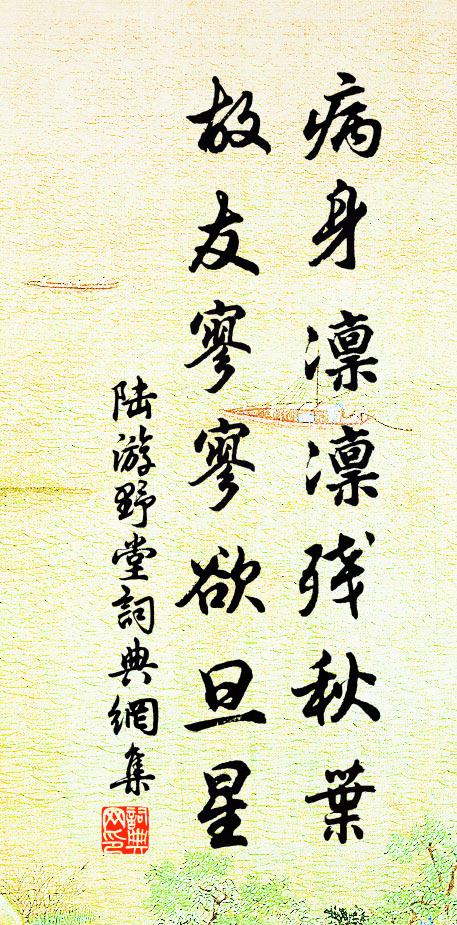 病身凛凛残秋葉
故友寥寥欲旦星
陆游野堂詞典網集
詞典網印